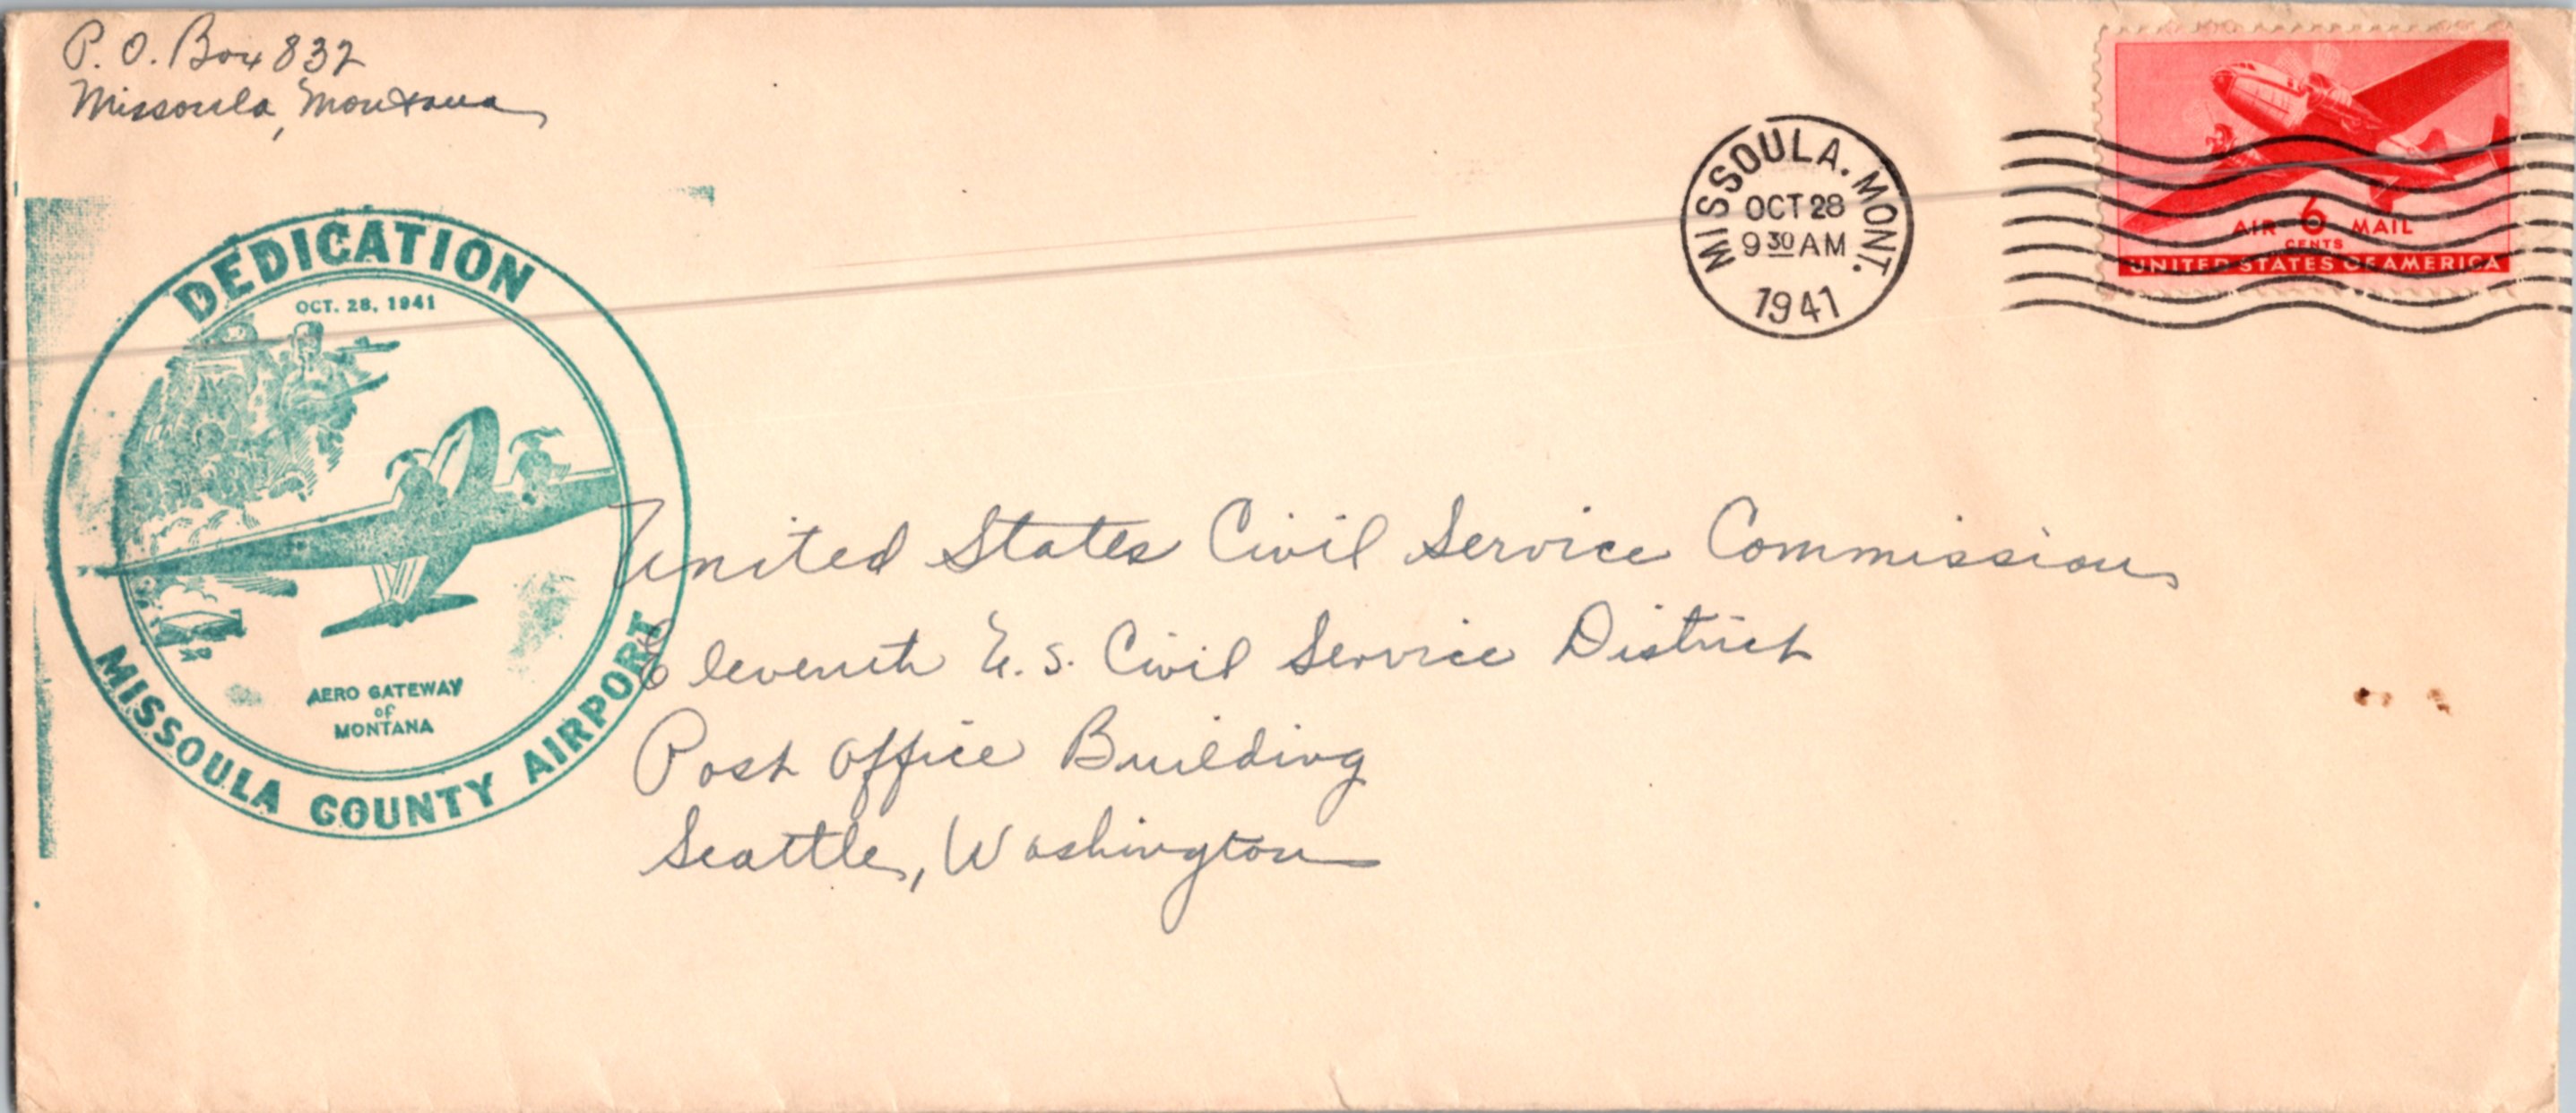 P. O. Box 832
Missoula, Montana
DEDICATION
OCT. 28, 1941
AERO GATEWAY
of
MONTANA
MISSOULA COUNTY AIRPORT
MISSOULA. MONT.
OCT 28
9 30 AM
1941
AIR 6 MAIL
CENTS
UNITED STATES OF AMERICA
United States Civil Service Commission
Eleventh U.S. Civil Service District
Post Office Building
Seattle, Washington